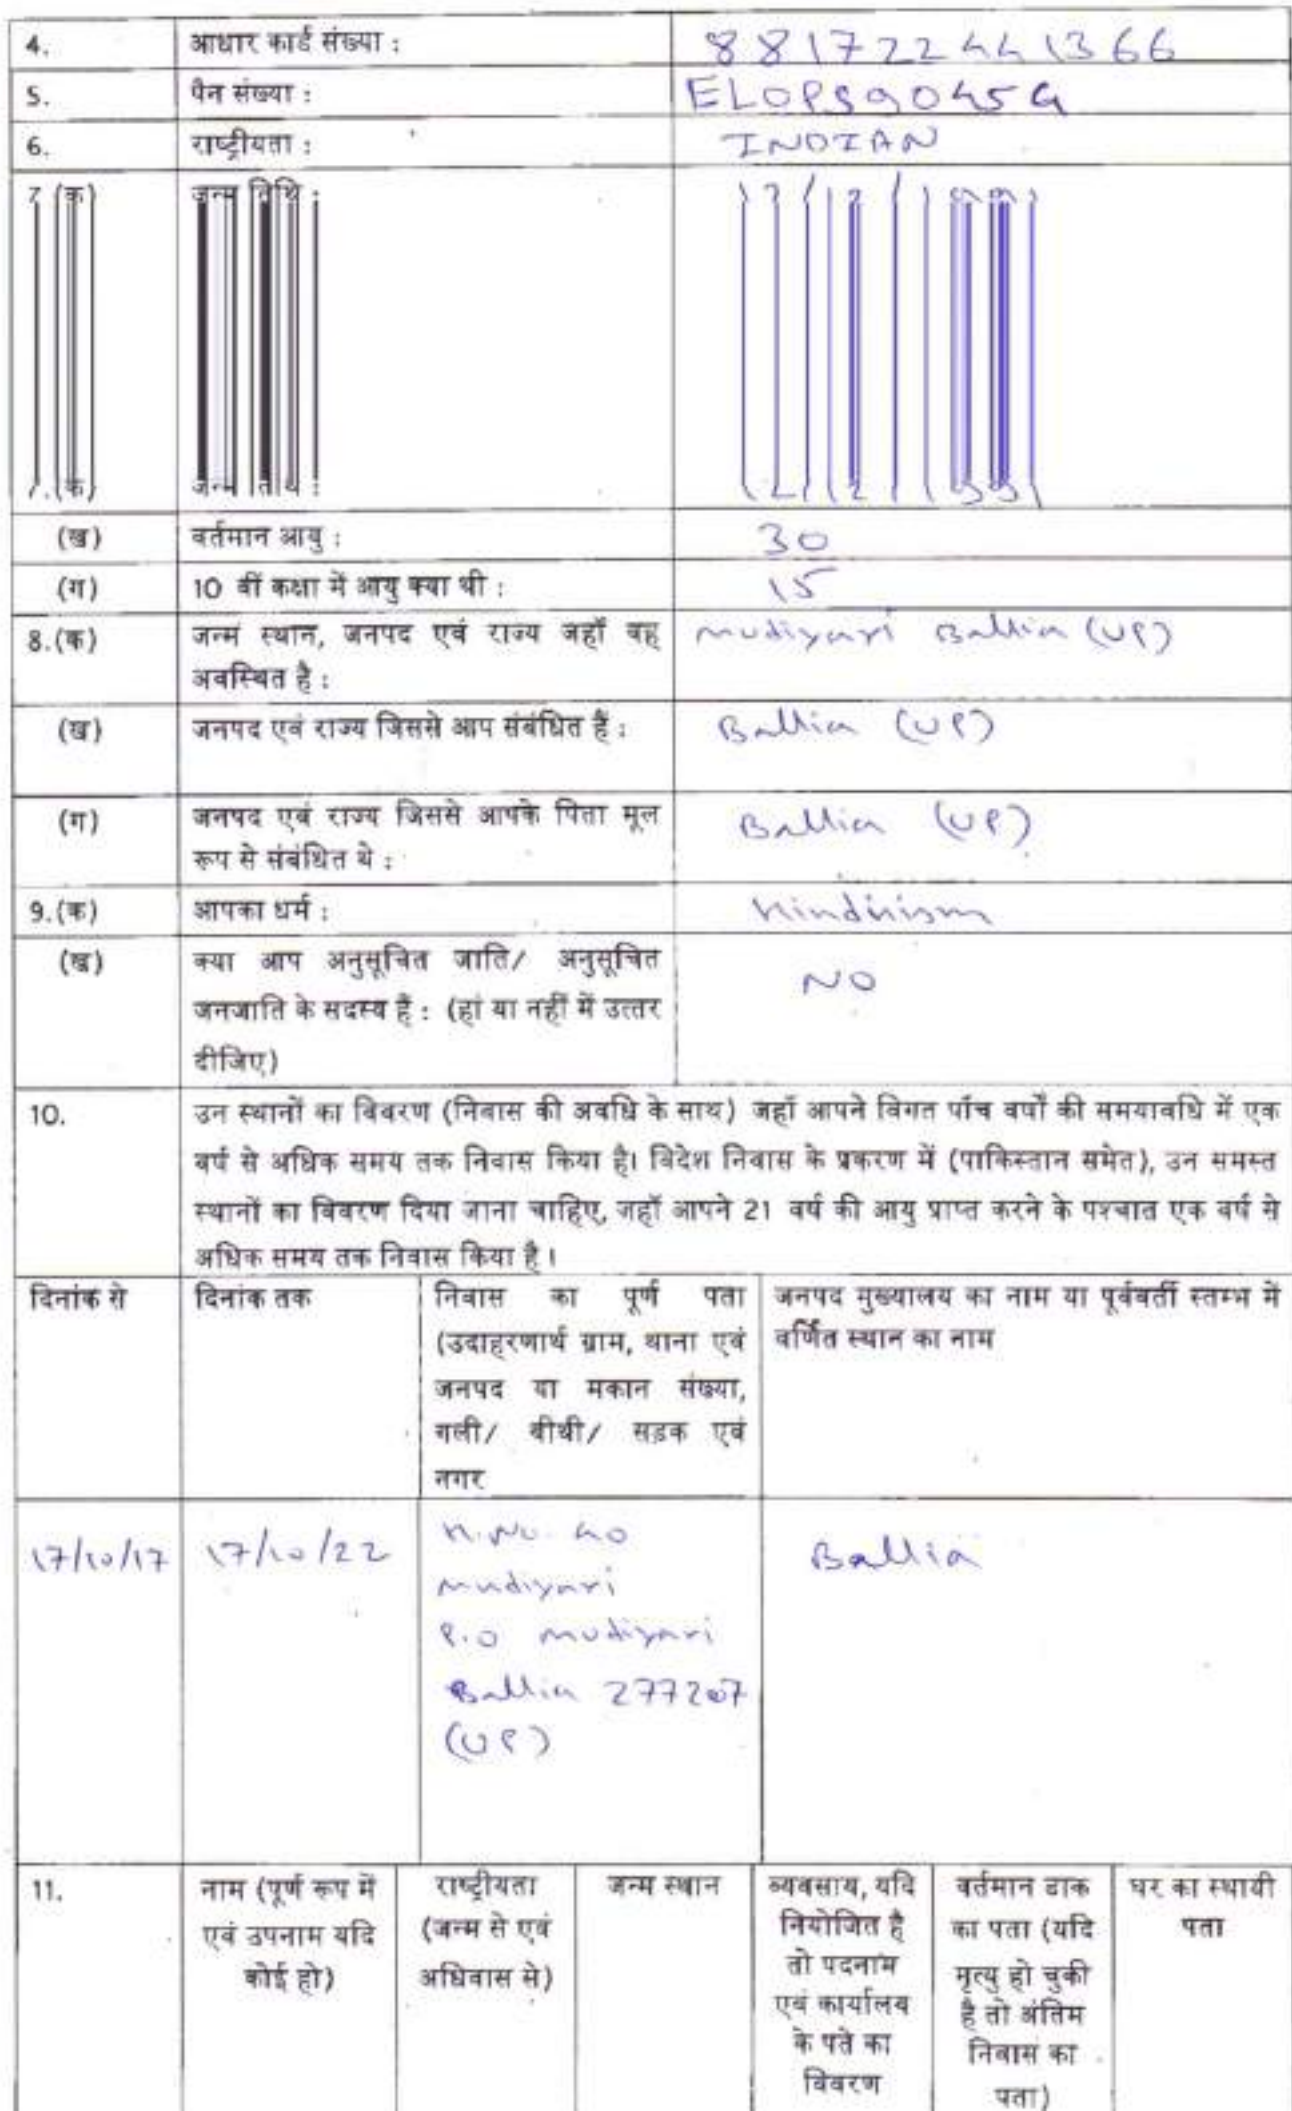 4. आधार कार्ड संख्या : 881722441366
5. पैन संख्या : ELOPS9045G
6. राष्ट्रीयता : INDIAN
7.(क) जन्म तिथि : 12/12/1991
(ख) वर्तमान आयु : 30
(ग) 10 वीं कक्षा में आयु क्या थी : 15
8.(क) जन्म स्थान, जनपद एवं राज्य जहाँ वह mudiyari Ballia (UP)
अवस्थित है :
(ख) जनपद एवं राज्य जिससे आप संबंधित हैं : Ballia (UP)
(ग) जनपद एवं राज्य जिससे आपके पिता मूल Ballia (UP)
रूप से संबंधित थे :
9.(क) आपका धर्म : Hinduism
(ख) क्या आप अनुसूचित जाति/ अनुसूचित NO
जनजाति के सदस्य हैं : (हां या नहीं में उत्तर
दीजिए)
10. उन स्थानों का विवरण (निवास की अवधि के साथ) जहाँ आपने विगत पाँच वर्षों की समयावधि में एक
वर्ष से अधिक समय तक निवास किया है। विदेश निवास के प्रकरण में (पाकिस्तान समेत), उन समस्त
स्थानों का विवरण दिया जाना चाहिए, जहाँ आपने 21 वर्ष की आयु प्राप्त करने के पश्चात एक वर्ष से
अधिक समय तक निवास किया है।
दिनांक से
दिनांक तक
निवास का पूर्ण पता
(उदाहरणार्थ ग्राम, थाना एवं
जनपद या मकान संख्या,
गली/ वीथी/ सड़क एवं
नगर
जनपद मुख्यालय का नाम या पूर्ववर्ती स्तम्भ में
वर्णित स्थान का नाम
17/10/17
17/10/22
H.No. 40
mudiyari
P.O mudiyari
Ballia 277207
(UP)
Ballia
11.
नाम (पूर्ण रूप में
एवं उपनाम यदि
कोई हो)
राष्ट्रीयता
(जन्म से एवं
अधिवास से)
जन्म स्थान
व्यवसाय, यदि
नियोजित है
तो पदनाम
एवं कार्यालय
के पते का
विवरण
वर्तमान डाक
का पता (यदि
मृत्यु हो चुकी
है तो अंतिम
निवास का
पता)
घर का स्थायी
पता